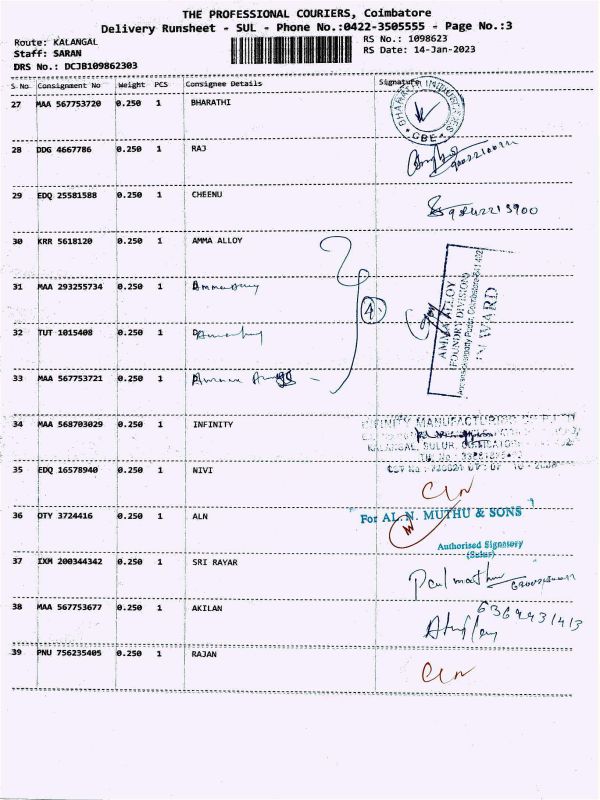 THE PROFESSIONAL COURIERS, Coimbatore
Delivery Runsheet - SUL - Phone No.:0422-3505555 - Page No.:3
Route: KALANGAL
RS No.: 1098623
Staff: SARAN
RS Date: 14-Jan-2023
DRS No.: DCJB109862303
S.No Consignment No Weight PCS Consignee Details Signature
27 MAA 567753720 0.250 1 BHARATHI
CBE
28 DDG 4667786 0.250 1 RAJ
29 EDQ 25581588 0.250 1 CHEENU
30 KRR 5618120 0.250 1 AMMA ALLOY
31 MAA 293255734 0.250 1
32 TUT 1015408 0.250 1
4
33 MAA 567753721 0.250 1
AMMA ALLOY
FOUNDRY DIVISION
INWARD
34 MAA 568703029 0.250 1 INFINITY
MANUFACTURING
KALANGAL, SULUR,
35 EDQ 16578940 0.250 1 NIVI
36 OTY 3724416 0.250 1 ALN
For AL. N. MUTHU & SONS
Authorised Signatory
(Sulur)
37 IXM 200344342 0.250 1 SRI RAYAR
38 MAA 567753677 0.250 1 AKILAN
39 PNU 756235405 0.250 1 RAJAN